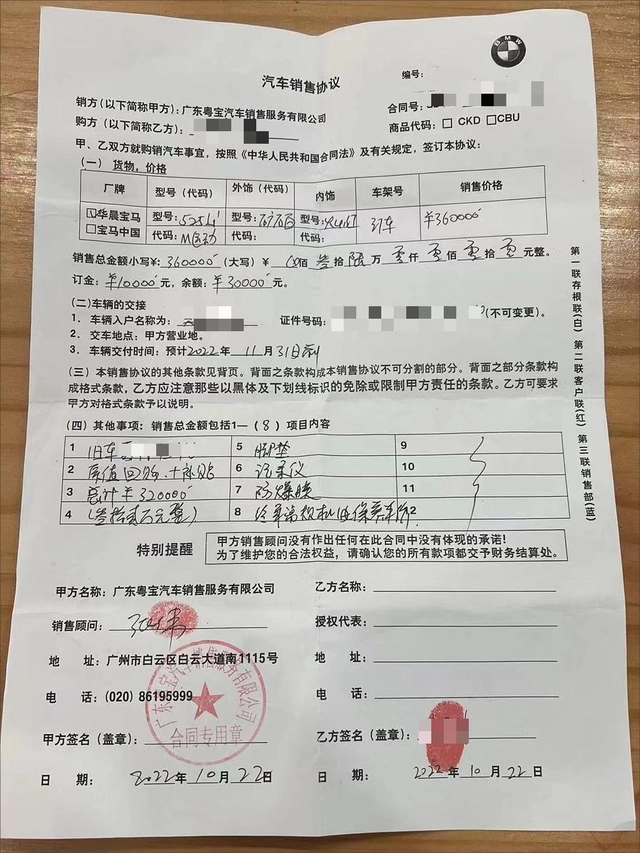 BMW
汽车销售协议
编号:
销方(以下简称甲方):广东粤宝汽车销售服务有限公司
合同号:
购方(以下简称乙方):
商品代码:□ CKD □ CBU
甲、乙双方就购销汽车事宜,按照《中华人民共和国合同法》及有关规定,签订本协议:
(一)货物,价格
厂牌 型号(代码) 外饰(代码) 内饰 车架号 销售价格
华晨宝马 型号:525Li 型号: 型号: 订车 ¥360000
□宝马中国 代码: 代码: 代码:
销售总金额小写¥:360000 (大写)¥ 佰 叁拾陆万 零仟 零佰 零拾 零元整。
订金:¥10000元,余额:¥30000元。
(二)车辆的交接
1. 车辆入户名称为: 证件号码: (不可变更)。
2. 交车地点:甲方营业地。
3. 车辆交付时间:预计2022年11月31日前
(三)本销售协议的其他条款见背页。背面之条款构成本销售协议不可分割的部分。背面之部分条款构
成格式条款,乙方应注意那些以黑体及下划线标识的免除或限制甲方责任的条款。乙方可要求
甲方对格式条款予以说明。
(四)其他事项:销售总金额包括1—(8)项目内容
1 旧车 5 脚垫 9
2 原值回购+补贴 6 记录仪 10
3 总计¥320000 7 防爆膜 11
4 (叁拾贰万元整) 8 12
特别提醒
甲方销售顾问没有作出任何在此合同中没有体现的承诺!
为了维护您的合法权益,请确认您的所有款项都交予财务结算处。
甲方名称:广东粤宝汽车销售服务有限公司
乙方名称:
销售顾问:
授权代表:
地 址:广州市白云区白云大道南1115号
地址:
电 话:(020) 86195999
电话:
甲方签名(盖章):
乙方签名(盖章):
日 期: 2022年10月22日
日 期: 2022年10月22日
广东粤宝汽车销售服务有限公司
合同专用章
第一联存根联(白) 第二联客户联(红) 第三联销售部(蓝)